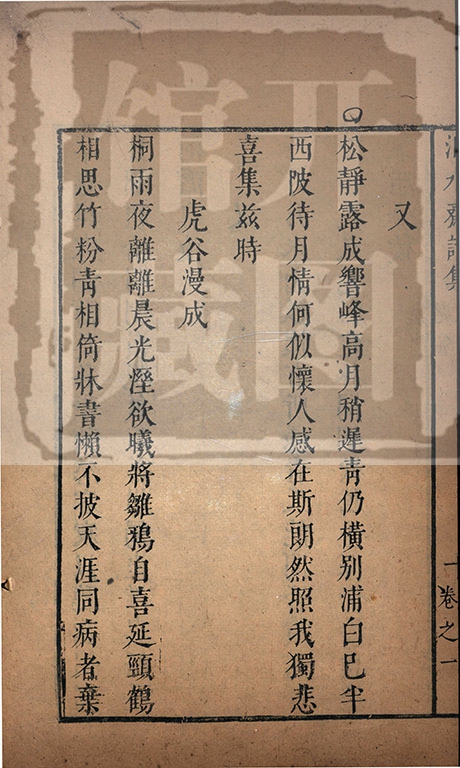 又
松靜露成響峰高月稍遲靑仍橫別浦白已半
西陂待月情何似懷人感在斯朗然照我獨悲
喜集茲時
虎谷漫成
桐雨夜離離晨光熞欲曦將雛鴉自喜延頸鶴
相思竹粉靑相倚牀書懶不披天涯同病者棄
卷之一
開圖
館藏